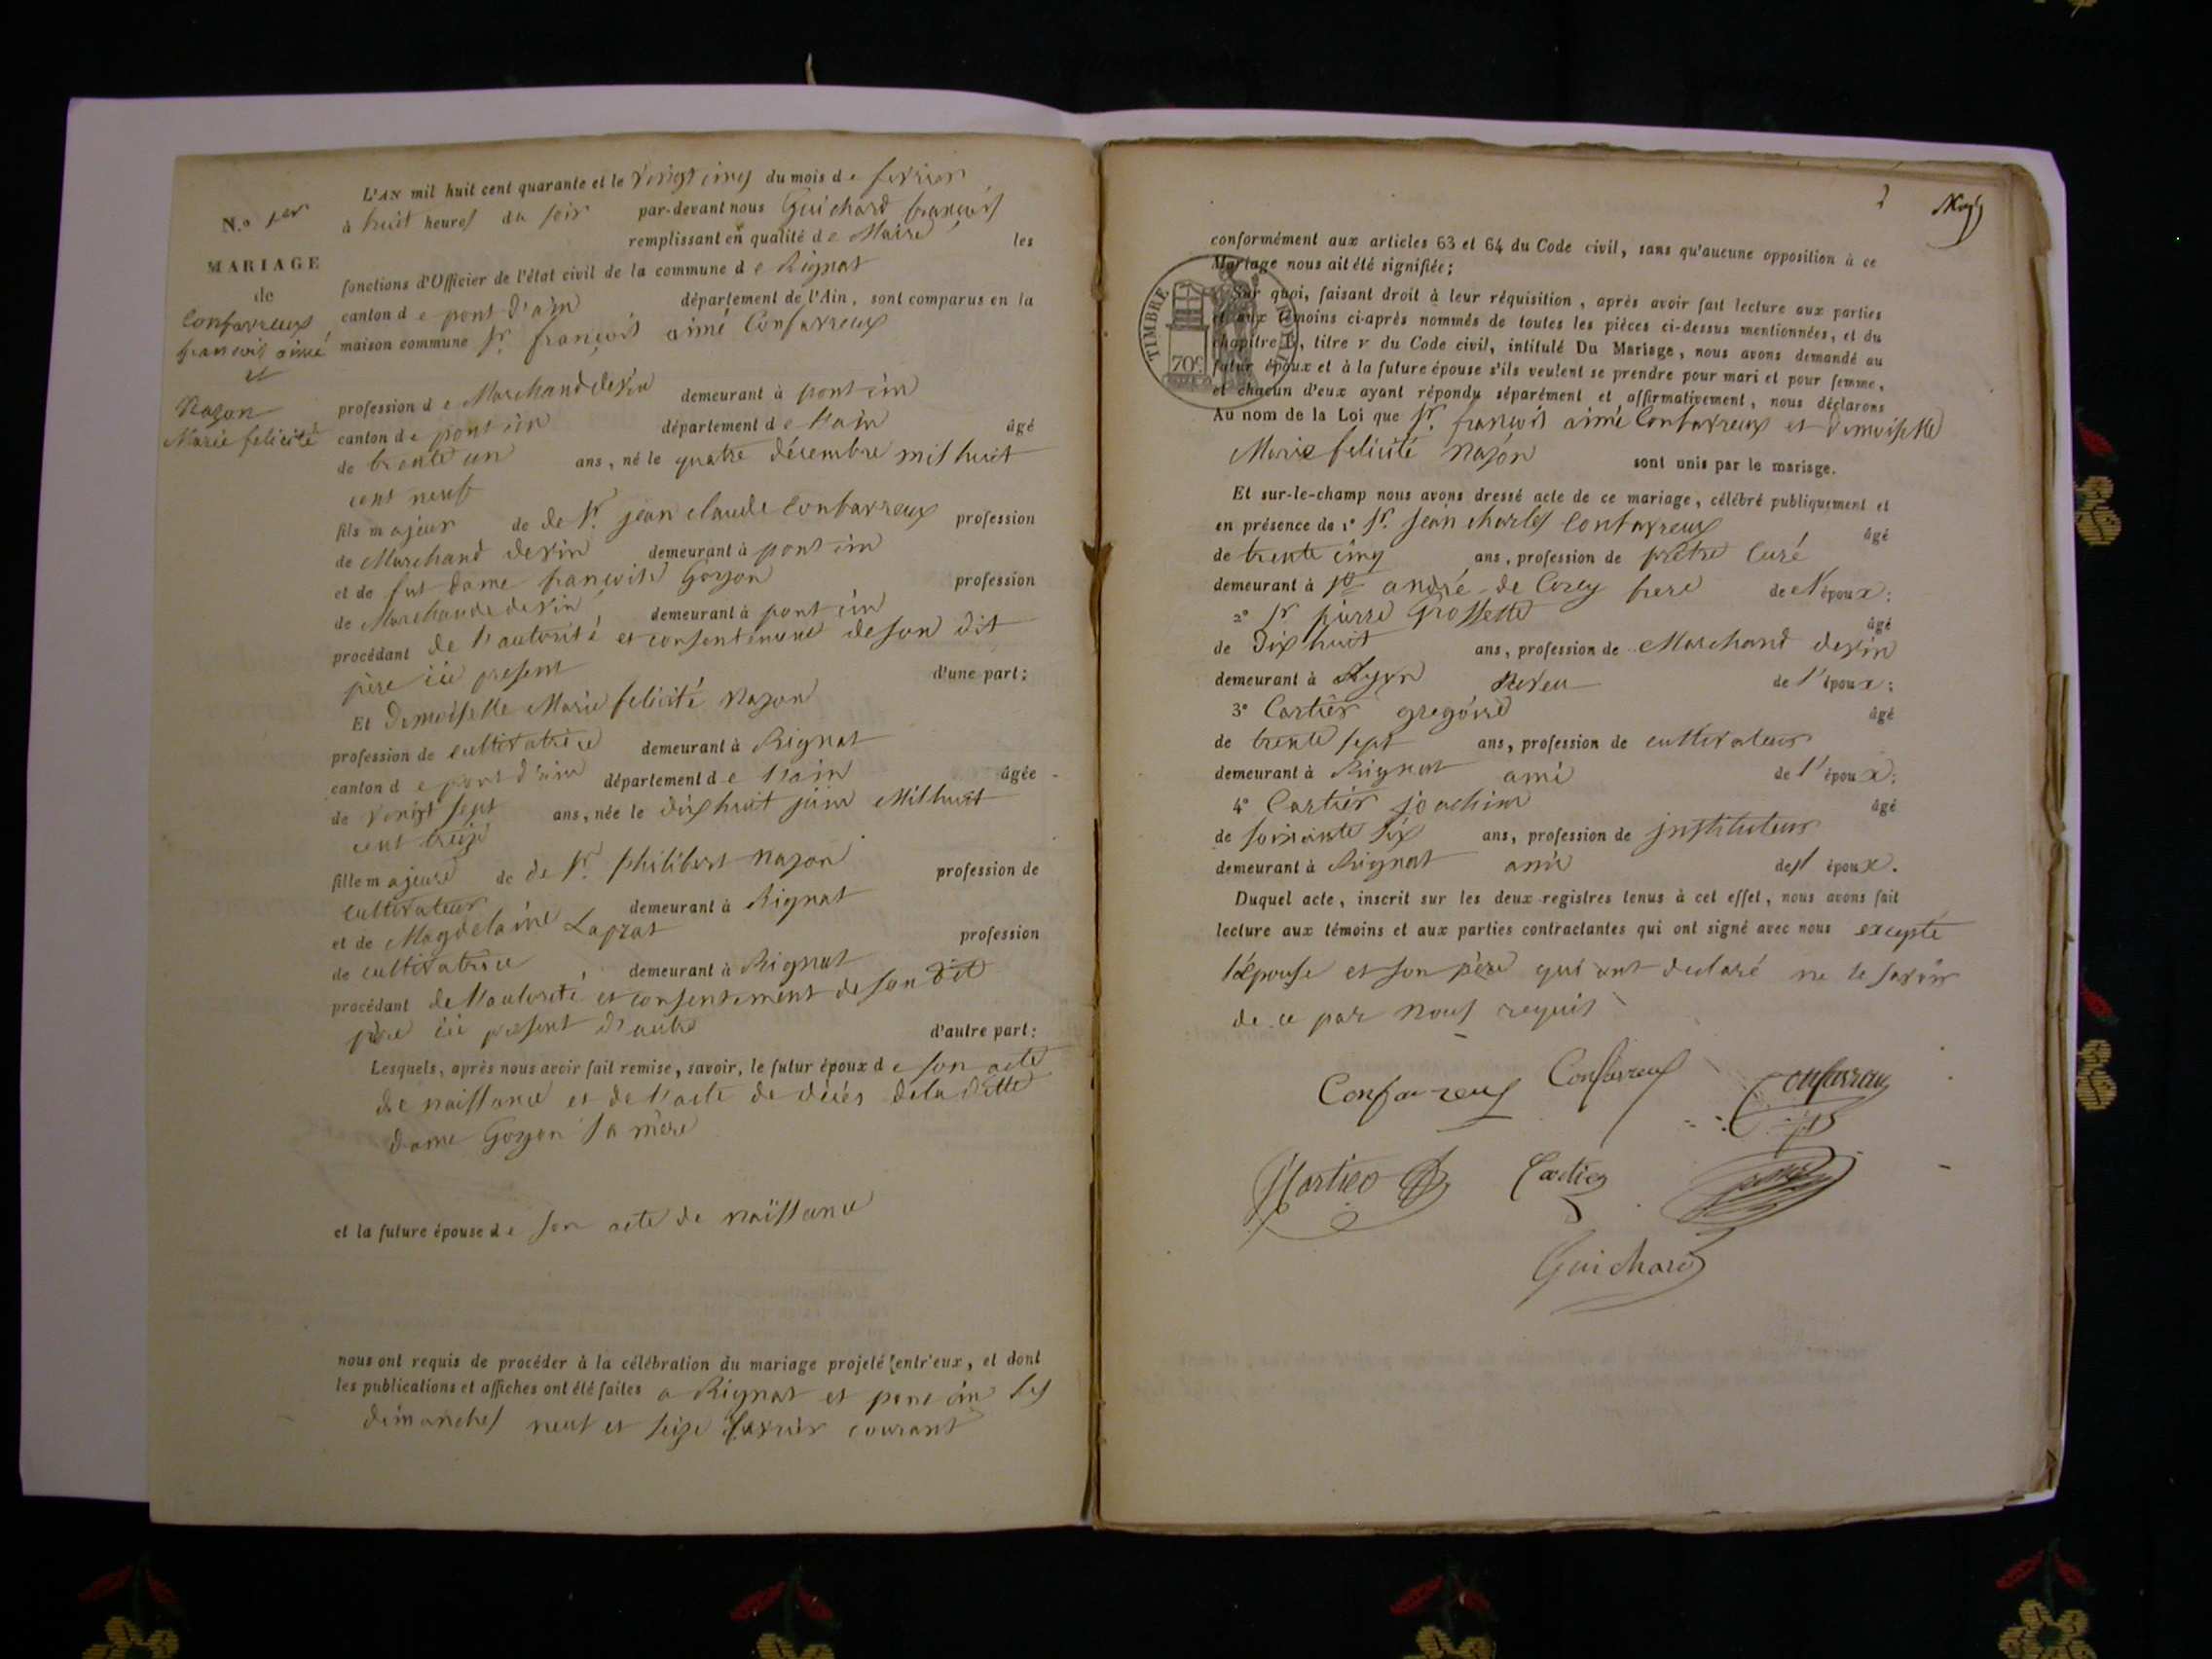 N.o 1er
MARIAGE
de
Confavreux
françois aimé
et
Nazon
Marie felicité
L'AN mil huit cent quarante et le Vingt cinq du mois de fevrier
à huit heures du soir par-devant nous Guichard françois
remplissant en qualité de Maire les
fonctions d'Officier de l'état civil de la commune de Rignat
canton de pont d'ain département de l'Ain, sont comparus en la
maison commune Sr. françois aimé Confavreux
profession de Marchand devin demeurant à pont ain
canton de pont ain département de l'ain âgé
de trente un ans, né le quatre décembre mil huit
cent neuf
fils majeur de de Sr. jean claude Confavreux profession
de Marchand devin demeurant à pont ain
et de fut dame françoise Goyon profession
de Marchande devin demeurant à pont ain
procédant de l'autorité et consentement deson dit
père ici present d'une part;
Et Demoiselle Marie felicité Nazon
profession de cultivatrice demeurant à Rignat
canton de pont d'ain département de l'ain âgée
de Vingt sept ans, née le dix huit juin Mil huit
cent treize
fille majeure de de Sr. philibert Nazon profession de
cultivateur demeurant à Rignat
et de Magdelaine Laprat profession
de cultivatrice demeurant à Rignat
procédant de l'autorité et consentement de son dit
père ici present d'autre d'autre part;
Lesquels, après nous avoir fait remise, savoir, le futur époux de son acte
de naissance et de l'acte de décès dela ditte
dame Goyon sa mère
et la future épouse de son acte de naissance
nous ont requis de procéder à la célébration du mariage projeté entr'eux, et dont
les publications et affiches ont été faites a Rignat et pont ain les
dimanches neuf et seize favrier courant
conformément aux articles 63 et 64 du Code civil, sans qu'aucune opposition à ce
Mariage nous ait été signifiée;
TIMBRE ROYAL
70c.
Sur quoi, faisant droit à leur réquisition, après avoir fait lecture aux parties
et aux témoins ci-après nommés de toutes les pièces ci-dessus mentionnées, et du
chapitre 6, titre v du Code civil, intitulé Du Mariage, nous avons demandé au
futur époux et à la future épouse s'ils veulent se prendre pour mari et pour femme,
et chacun d'eux ayant répondu séparément et affirmativement, nous déclarons
Au nom de la Loi que Sr. françois aimé Confavreux et Demoiselle
Marie felicité Nazon sont unis par le mariage.
Et sur-le-champ nous avons dressé acte de ce mariage, célébré publiquement et
en présence de 1o Sr. Jean charles Confavreux âgé
de trente cinq ans, profession de prêtre Curé
demeurant à St andré-de Corcy frere de l'époux;
2o Sr pierre Grossette âgé
de Dix huit ans, profession de Marchand devin
demeurant à Lyon Neveu de l'époux;
3o Cartier gregoire âgé
de trente sept ans, profession de cultivateur
demeurant à Rignat ami de l'époux;
4o Cartier joachim âgé
de soixante six ans, profession de jnstituteur
demeurant à Rignat ami de l'époux.
Duquel acte, inscrit sur les deux registres tenus à cet effet, nous avons fait
lecture aux témoins et aux parties contractantes qui ont signé avec nous excepté
l'épouse et son père qui ont declaré ne le savoir
de ce par nous requis
Confavreux Confavreux Confavreux
Cartier Cartier
Guichard